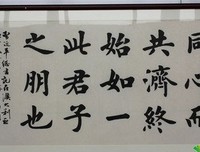 同心而
共濟終
始如一
此君子
之朋也